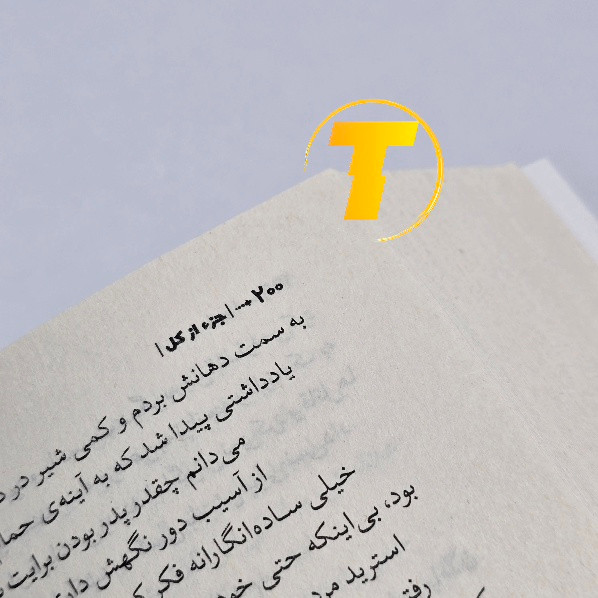 T
۲۰۰ ... | جزء از کل |
به سمت دهانش بردم و کمی شیر در د
یادداشتی پیدا شد که به آینه‌ی حما
می‌دانم چقدر پدر بودن برایت
از آسیب دور نگهش دار
خیلی ساده‌انگارانه فکر
بود، بی‌اینکه حتی خو
استرید مرد
رفت